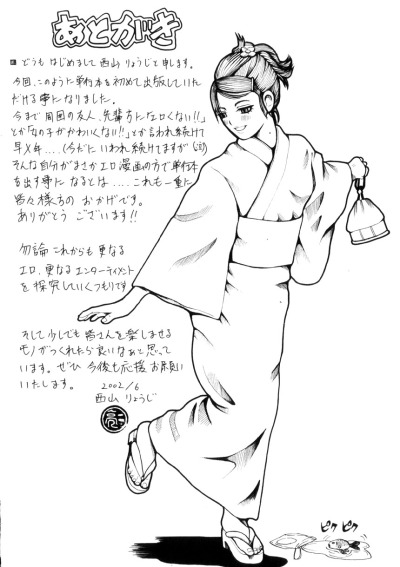 あとがき
どうも はじめまして 西山 りょうじと申します。
今回、このように単行本を初めて出版していた
だける事になりました。
今まで 周囲の友人、先輩方に「エロくない!!」
とか「女の子がかわいくない!!」とか言われ続けて
早×年‥‥(今だに いわれ続けてますが
そんな自分がまさか エロ漫画の方で単行本
を出す事に なるとは ‥‥ これも一重に
皆々様方の おかげです。
ありがとう ございます!!
勿論 これからも 更なる
エロ、更なる エンターティメント
を探究していくつもりです
そして 少しでも 皆さんを 楽しませる
モノがつくれたら良いなぁと 思って
います。ぜひ 今後も 応援 お願い
いたします。
2002/6
西山 りょうじ
ピク ピク